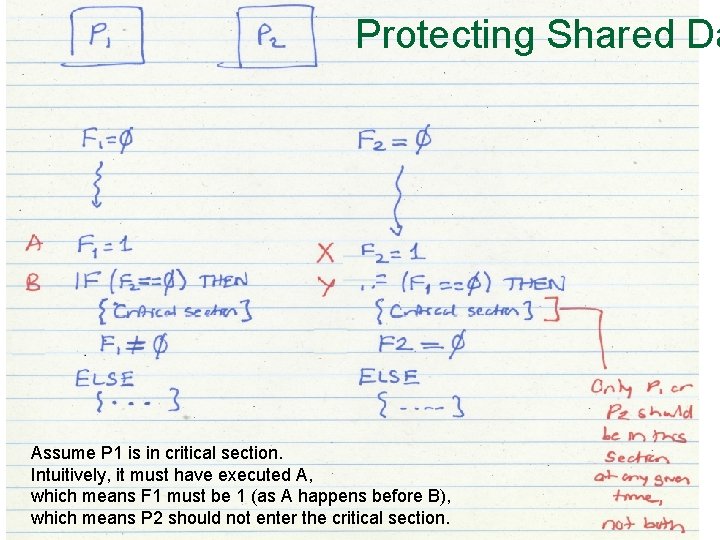 P1 P2 Protecting Shared Da
F1=∅ F2=∅
A F1=1 X F2=1
B IF (F2==∅) THEN Y ..= (F1==∅) THEN
{Critical section} {Critical section}
F1≠∅ F2=∅
ELSE ELSE
{...} {....}
Only P1 or
P2 should
be in this
section
at any given
time,
not both
Assume P1 is in critical section.
Intuitively, it must have executed A,
which means F1 must be 1 (as A happens before B),
which means P2 should not enter the critical section.